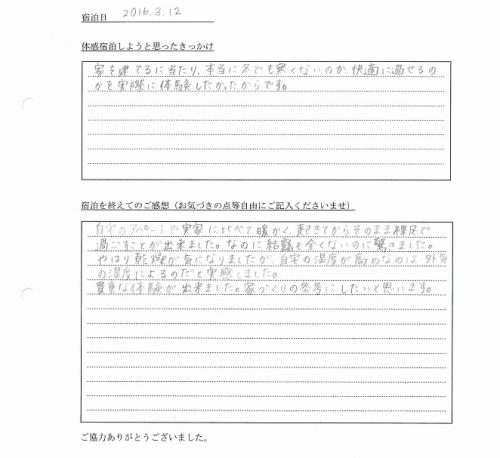 宿泊日 2016.3.12
体感宿泊しようと思ったきっかけ
家を建てるに当たり、本当に冬でも寒くないのか、快適に過せるの
かを実際に体験したかったからです。
宿泊を終えてのご感想（お気づきの点等自由にご記入くださいませ）
自宅のアパートや実家に比べて暖かく、起きてからそのまま裸足で
過ごすことが出来ました。なのに結露も全くないのに驚きました。
やはり乾燥が気になりましたが、自宅の湿度が高めなのは外気
の湿度によるのだと実感しました。
貴重な体験が出来ました。家づくりの参考にしたいと思います。
ご協力ありがとうございました。